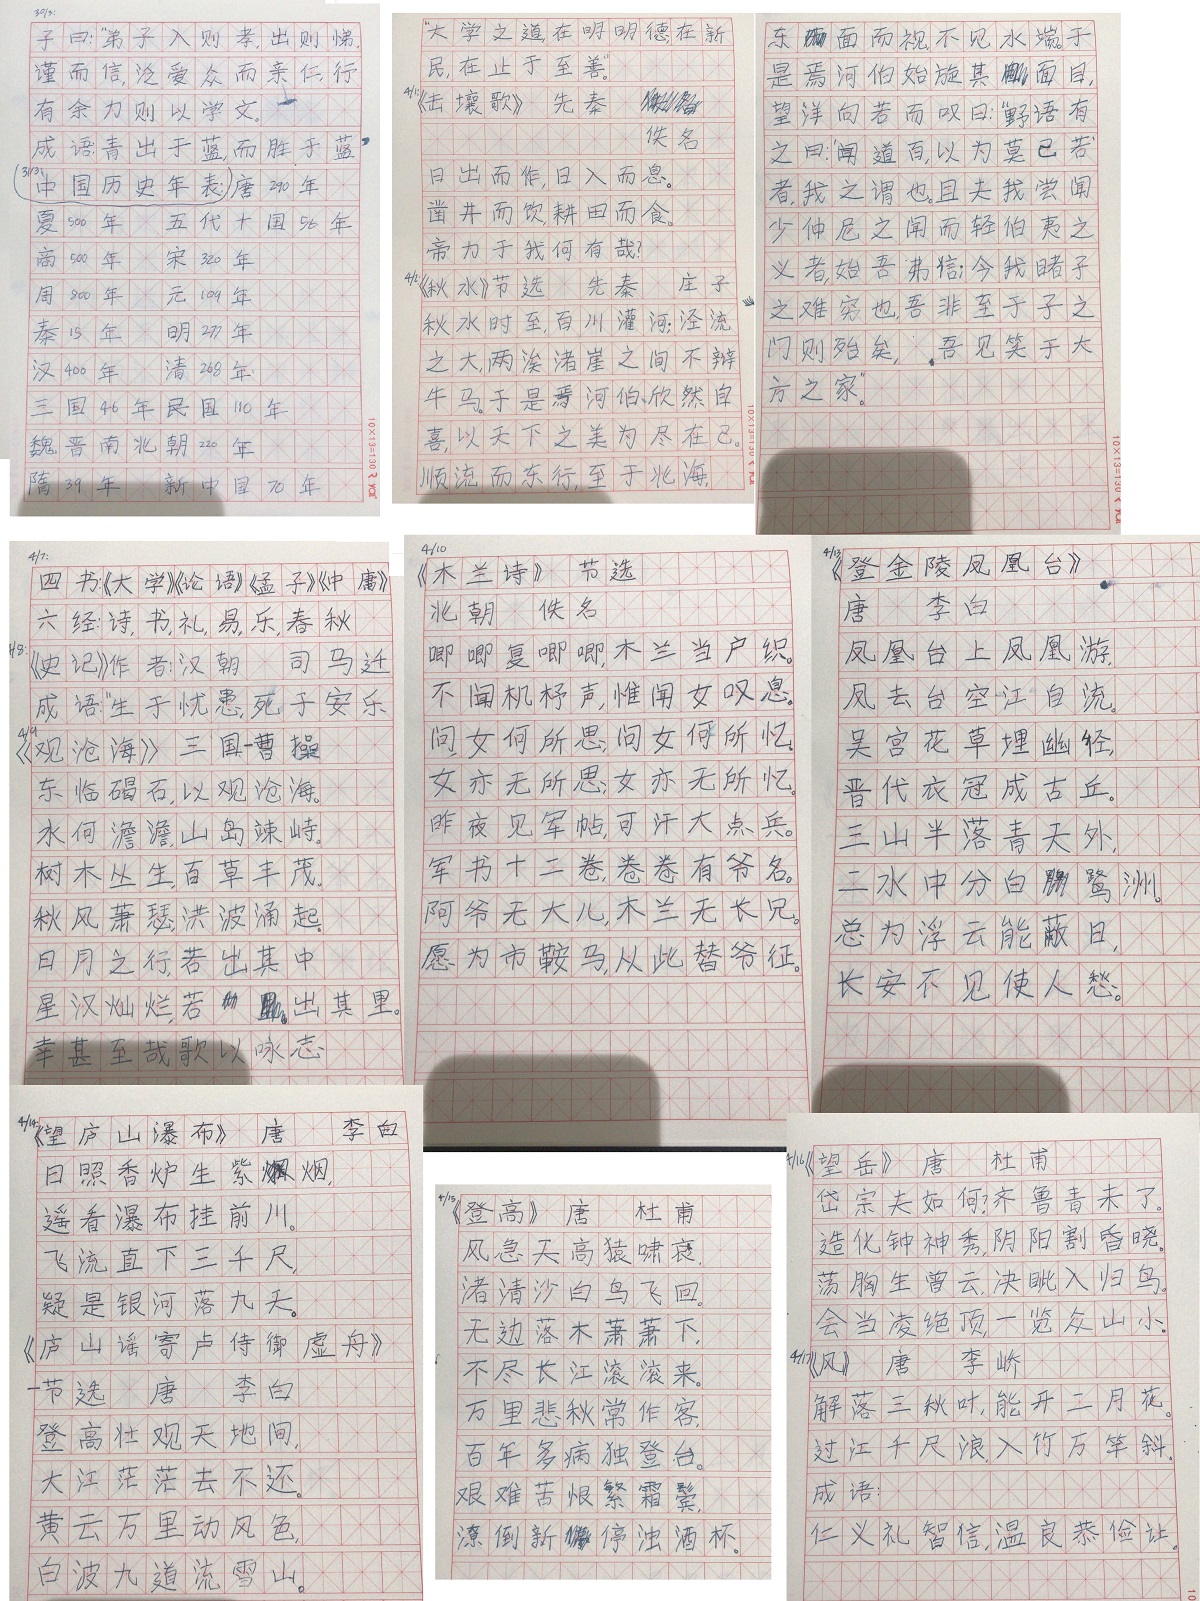 30/3:
子曰:"弟子入则孝,出则悌,
谨而信,泛爱众而亲仁,行
有余力则以学文。
成语:青出于蓝,而胜于蓝
31/3:
中国历史年表:唐290年
夏500年 五代十国56年
商500年 宋320年
周800年 元109年
秦15年 明277年
汉400年 清268年
三国46年民国110年
魏晋南北朝220年
隋39年 新中国70年
10×13=130
"大学之道,在明明德,在新
民,在止于至善。"
4/1:
《击壤歌》 先秦
佚名
日出而作,日入而息。
凿井而饮,耕田而食。
帝力于我何有哉?
4/2
《秋水》节选 先秦 庄子
秋水时至,百川灌河;泾流
之大,两涘渚崖之间不辩
牛马。于是焉河伯欣然自
喜,以天下之美为尽在己。
顺流而东行,至于北海,
10×13=130
东面而视,不见水端。于
是焉河伯始旋其面目,
望洋向若而叹曰:"野语有
之曰:'闻道百,以为莫己若'
者,我之谓也。且夫我尝闻
少仲尼之闻而轻伯夷之
义者,始吾弗信;今我睹子
之难穷也,吾非至于子之
门则殆矣, 吾见笑于大
方之家。"
10×13=130
4/7:
四书:《大学》《论语》《孟子》《中庸》
六经:诗,书,礼,易,乐,春秋
4/8:
《史记》作者:汉朝 司马迁
成语:"生于忧患,死于安乐
4/9
《观沧海》 三国-曹操
东临碣石,以观沧海。
水何澹澹,山岛竦峙。
树木丛生,百草丰茂。
秋风萧瑟,洪波涌起。
日月之行若出其中
星汉灿烂,若出其里。
幸甚至哉歌以咏志
4/10
《木兰诗》 节选
北朝 佚名
唧唧复唧唧,木兰当户织。
不闻机杼声,惟闻女叹息。
问女何所思,问女何所忆。
女亦无所思,女亦无所忆。
昨夜见军帖,可汗大点兵。
军书十二卷,卷卷有爷名。
阿爷无大儿,木兰无长兄。
愿为市鞍马,从此替爷征。
4/13
《登金陵凤凰台》
唐 李白
凤凰台上凤凰游,
凤去台空江自流。
吴宫花草埋幽径,
晋代衣冠成古丘。
三山半落青天外,
二水中分白鹭洲。
总为浮云能蔽日,
长安不见使人愁。
4/14:
《望庐山瀑布》 唐 李白
日照香炉生紫烟,
遥看瀑布挂前川。
飞流直下三千尺,
疑是银河落九天。
《庐山谣寄卢侍御虚舟》
-节选 唐 李白
登高壮观天地间,
大江茫茫去不还。
黄云万里动风色,
白波九道流雪山。
4/15
《登高》 唐 杜甫
风急天高猿啸哀,
渚清沙白鸟飞回。
无边落木萧萧下,
不尽长江滚滚来。
万里悲秋常作客,
百年多病独登台。
艰难苦恨繁霜鬓,
潦倒新停浊酒杯。
4/16
《望岳》 唐 杜甫
岱宗夫如何?齐鲁青未了。
造化钟神秀,阴阳割昏晓。
荡胸生曾云,决眦入归鸟。
会当凌绝顶,一览众山小。
4/17
《风》 唐 李峤
解落三秋叶,能开二月花。
过江千尺浪,入竹万竿斜。
成语:
仁义礼智信,温良恭俭让。
10